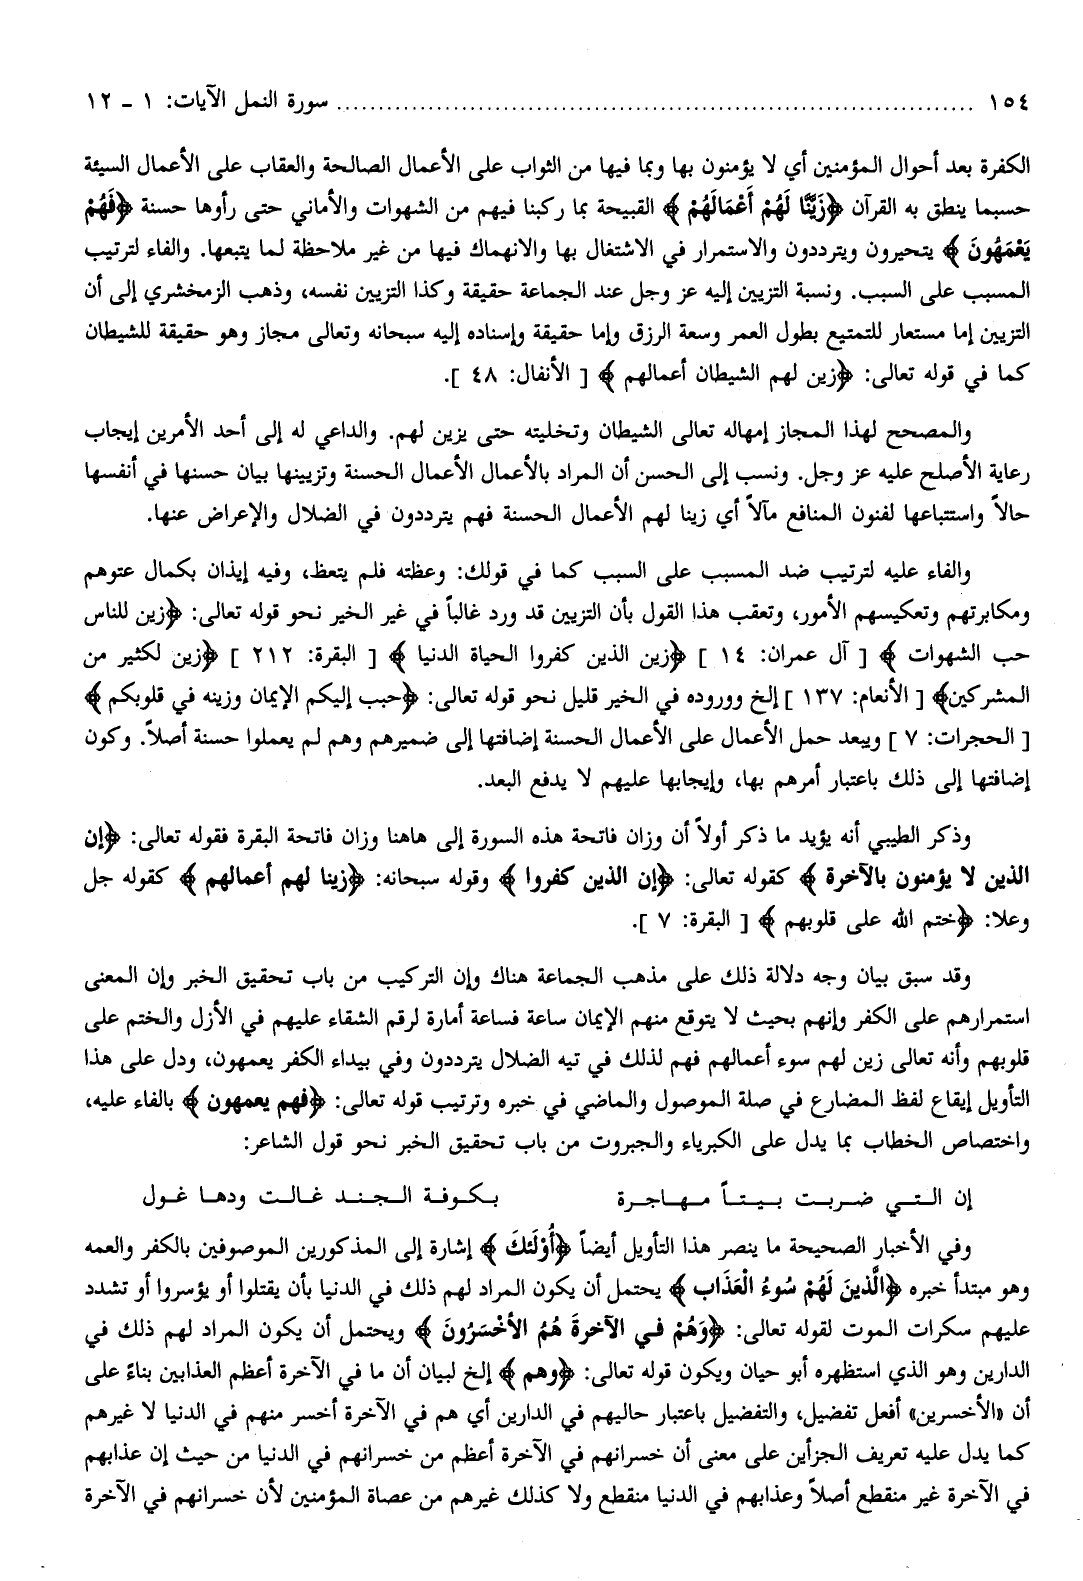 ١٥٤ ................................................................................ سورة النمل الآيات: ١ - ١٢
الكفرة بعد أحوال المؤمنين أي لا يؤمنون بها وبما فيها من الثواب على الأعمال الصالحة والعقاب على الأعمال السيئة
حسبما ينطق به القرآن ﴿زَيَّنَّا لَهُمْ أَعْمَالَهُمْ﴾ القبيحة بما ركبنا فيهم من الشهوات والأماني حتى رأوها حسنة ﴿فَهُمْ
يَعْمَهُونَ﴾ يتحيرون ويترددون والاستمرار في الاشتغال بها والانهماك فيها من غير ملاحظة لما يتبعها. والفاء لترتيب
المسبب على السبب. ونسبة التزيين إليه عز وجل عند الجماعة حقيقة وكذا التزيين نفسه، وذهب الزمخشري إلى أن
التزيين إما مستعار للتمتيع بطول العمر وسعة الرزق وإما حقيقة وإسناده إليه سبحانه وتعالى مجاز وهو حقيقة للشيطان
كما في قوله تعالى: ﴿زين لهم الشيطان أعمالهم﴾ [ الأنفال: ٤٨ ].
والمصحح لهذا المجاز إمهاله تعالى الشيطان وتخليته حتى يزين لهم. والداعي له إلى أحد الأمرين إيجاب
رعاية الأصلح عليه عز وجل. ونسب إلى الحسن أن المراد بالأعمال الأعمال الحسنة وتزيينها بيان حسنها في أنفسها
حالاً واستتباعها لفنون المنافع مآلاً أي زينا لهم الأعمال الحسنة فهم يترددون في الضلال والإعراض عنها.
والفاء عليه لترتيب ضد المسبب على السبب كما في قولك: وعظته فلم يتعظ، وفيه إيذان بكمال عتوهم
ومكابرتهم وتعكيسهم الأمور، وتعقب هذا القول بأن التزيين قد ورد غالباً في غير الخير نحو قوله تعالى: ﴿زين للناس
حب الشهوات﴾ [ آل عمران: ١٤ ] ﴿زين الذين كفروا الحياة الدنيا﴾ [ البقرة: ٢١٢ ] ﴿زين لكثير من
المشركين﴾ [ الأنعام: ١٣٧ ] إلخ ووروده في الخير قليل نحو قوله تعالى: ﴿حبب إليكم الإيمان وزينه في قلوبكم﴾
[ الحجرات: ٧ ] ويبعد حمل الأعمال على الأعمال الحسنة إضافتها إلى ضميرهم وهم لم يعملوا حسنة أصلاً. وكون
إضافتها إلى ذلك باعتبار أمرهم بها، وإيجابها عليهم لا يدفع البعد.
وذكر الطيبي أنه يؤيد ما ذكر أولاً أن وزان فاتحة هذه السورة إلى هاهنا وزان فاتحة البقرة فقوله تعالى: ﴿إن
الذين لا يؤمنون بالآخرة﴾ كقوله تعالى: ﴿إن الذين كفروا﴾ وقوله سبحانه: ﴿زينا لهم أعمالهم﴾ كقوله جل
وعلا: ﴿ختم الله على قلوبهم﴾ [ البقرة: ٧ ].
وقد سبق بيان وجه دلالة ذلك على مذهب الجماعة هناك وإن التركيب من باب تحقيق الخبر وإن المعنى
استمرارهم على الكفر وإنهم بحيث لا يتوقع منهم الإيمان ساعة فساعة أمارة لرقم الشقاء عليهم في الأزل والختم على
قلوبهم وأنه تعالى زين لهم سوء أعمالهم فهم لذلك في تيه الضلال يترددون وفي بيداء الكفر يعمهون، ودل على هذا
التأويل إيقاع لفظ المضارع في صلة الموصول والماضي في خبره وترتيب قوله تعالى: ﴿فهم يعمهون﴾ بالفاء عليه،
واختصاص الخطاب بما يدل على الكبرياء والجبروت من باب تحقيق الخبر نحو قول الشاعر:
إن الـتـي ضـربـت بـيـتـاً مـهـاجـرة بـكـوفـة الـجـنـد غـالـت ودهـا غـول
وفي الأخبار الصحيحة ما ينصر هذا التأويل أيضاً ﴿أُوْلَئكَ﴾ إشارة إلى المذكورين الموصوفين بالكفر والعمه
وهو مبتدأ خبره ﴿الَّذينَ لَهُمْ سُوءُ الْعَذَاب﴾ يحتمل أن يكون المراد لهم ذلك في الدنيا بأن يقتلوا أو يؤسروا أو تشدد
عليهم سكرات الموت لقوله تعالى: ﴿وَهُمْ فـي الآخرةَ هُمُ الأَخْسَرُونَ﴾ ويحتمل أن يكون المراد لهم ذلك في
الدارين وهو الذي استظهره أبو حيان ويكون قوله تعالى: ﴿وهم﴾ إلخ لبيان أن ما في الآخرة أعظم العذابين بناءً على
أن «الأخسرين» أفعل تفضيل، والتفضيل باعتبار حاليهم في الدارين أي هم في الآخرة أخسر منهم في الدنيا لا غيرهم
كما يدل عليه تعريف الجزأين على معنى أن خسرانهم في الآخرة أعظم من خسرانهم في الدنيا من حيث إن عذابهم
في الآخرة غير منقطع أصلاً وعذابهم في الدنيا منقطع ولا كذلك غيرهم من عصاة المؤمنين لأن خسرانهم في الآخرة